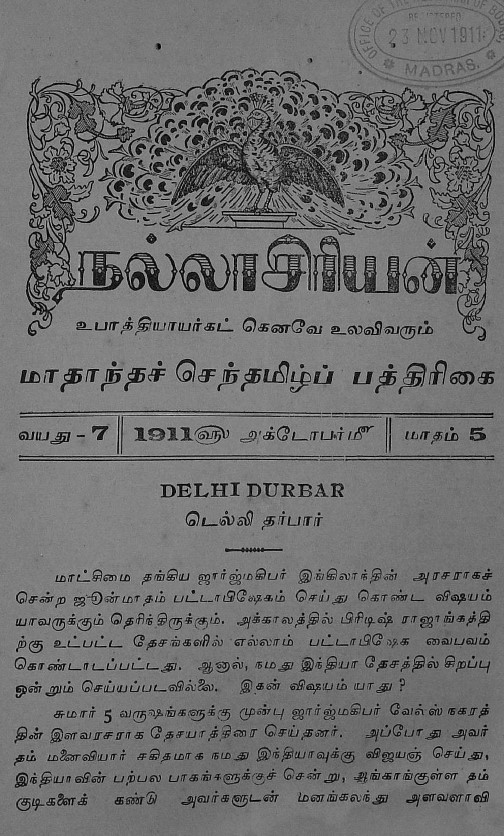 OFFICE OF THE
REGISTERED
23 NOV 1911
MADRAS.
நல்லாசிரியன்
உபாத்தியாயர்கட் கெனவே உலவிவரும்
மாதாந்தச் செந்தமிழ்ப் பத்திரிகை
வயது - 7 1911௵ அக்டோபர்௴ மாதம் 5
DELHI DURBAR
டெல்லி தர்பார்
மாட்சிமை தங்கிய ஜார்ஜ்மகிபர் இங்கிலாந்தின் அரசராகச்
சென்ற ஜூன்மாதம் பட்டாபிஷேகம் செய்து கொண்ட விஷயம்
யாவருக்கும் தெரிந்திருக்கும். அக்காலத்தில் பிரிடிஷ் ராஜாங்கத்தி
ற்கு உட்பட்ட தேசங்களில் எல்லாம் பட்டாபிஷேக வைபவம்
கொண்டாடப்பட்டது. ஆனால், நமது இந்தியா தேசத்தில் சிறப்பு
ஒன்றும் செய்யப்படவில்லை. இதன் விஷயம் யாது?
சுமார் 5 வருஷங்களுக்கு முன்பு ஜார்ஜ்மகிபர் வேல்ஸ் நகரத்
தின் இளவரசராக தேசயாத்திரை செய்தனர். அப்போது அவர்
தம் மனைவியார் சகிதமாக நமது இந்தியாவுக்கு விஜயஞ் செய்து,
இந்தியாவின் பற்பல பாகங்களுக்குச் சென்று, ஆங்காங்குள்ள தம்
குடிகளைக் கண்டு அவர்களுடன் மனங்கலந்து அளவளாவி